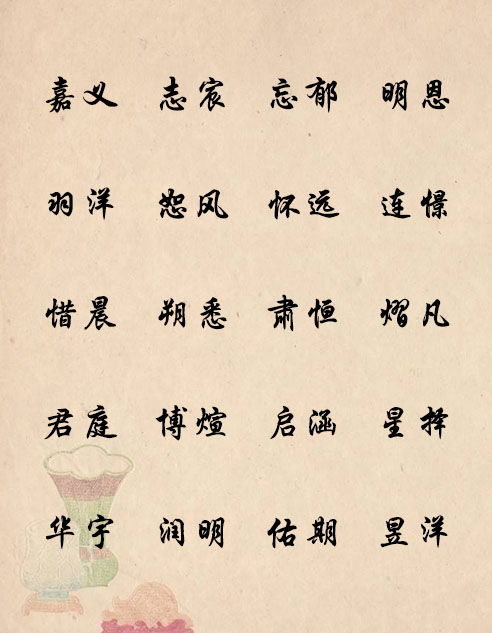 嘉义 志宸 忘郁 明恩
羽洋 恕风 怀远 连憬
惜晨 朔悉 肃恒 熠凡
君庭 博煊 启涵 星择
华宇 润明 佑期 昱洋